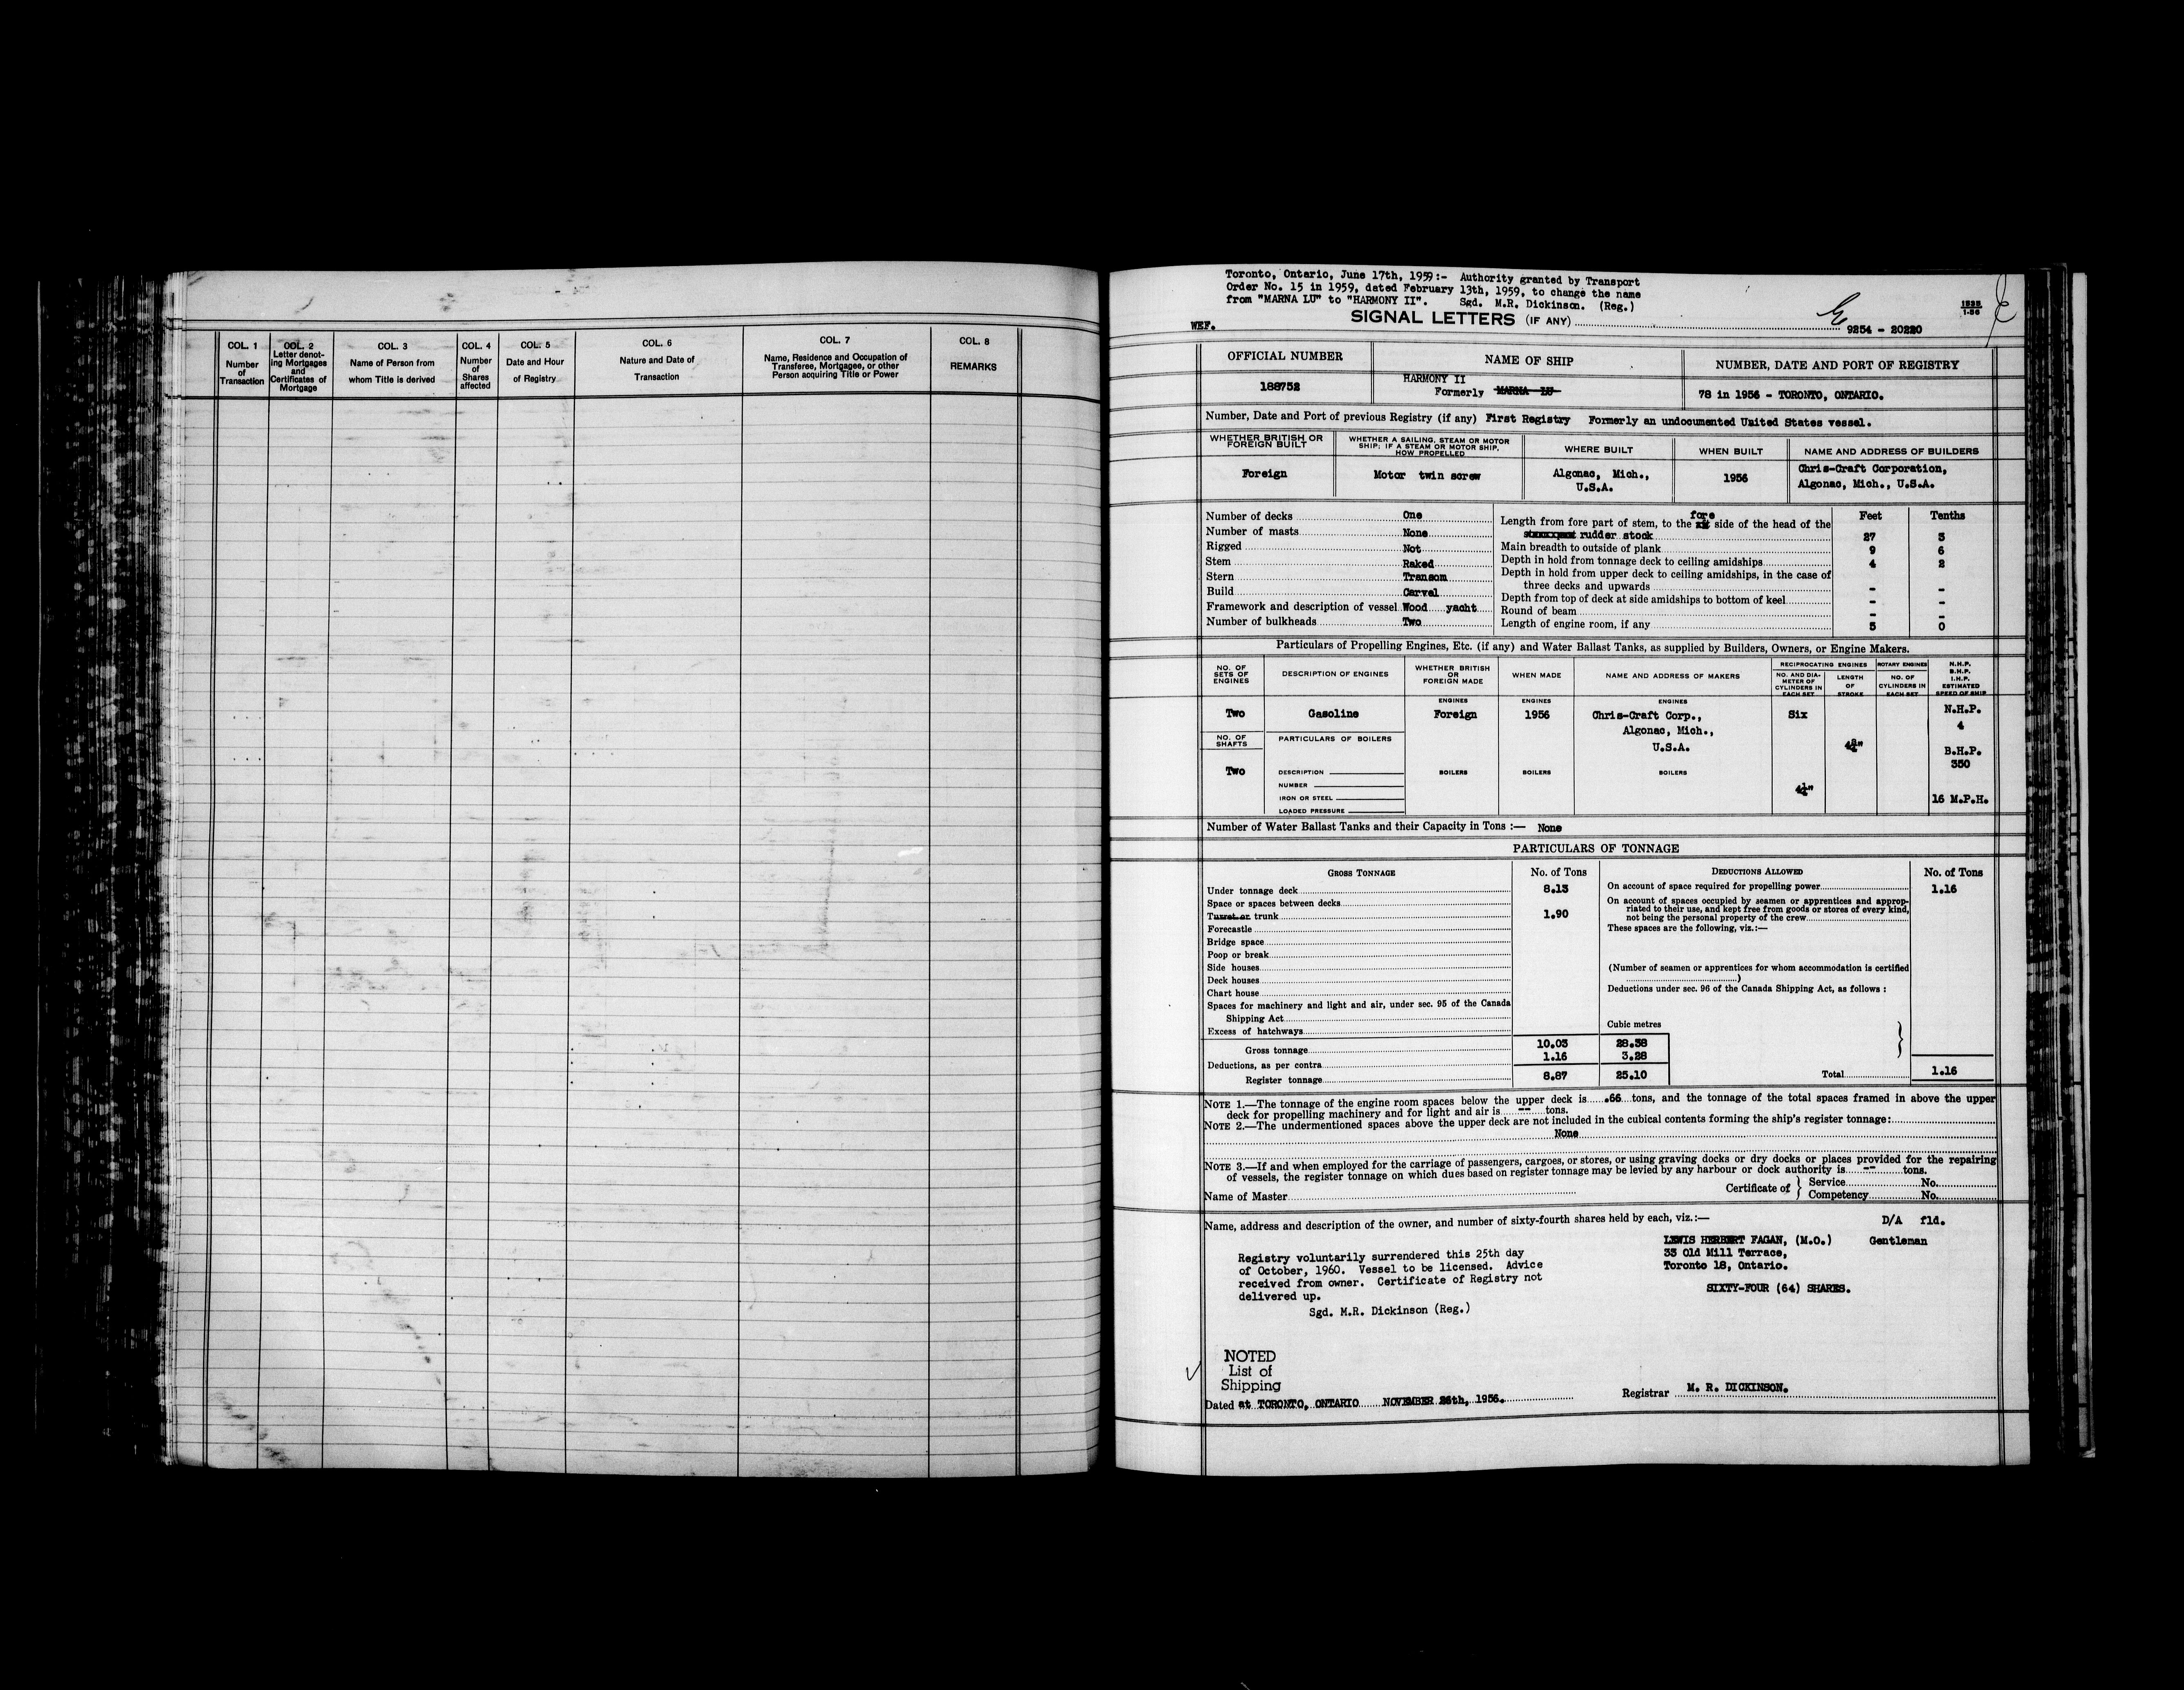 COL. 1
Number
of
Transaction
COL. 2
Letter denot-
ing Mortgages
and
Certificates of
Mortgage
COL. 3
Name of Person from
whom Title is derived
COL. 4
Number
of
Shares
affected
COL. 5
Date and Hour
of Registry
COL. 6
Nature and Date of
Transaction
COL. 7
Name, Residence and Occupation of
Transferee, Mortgagee, or other
Person acquiring Title or Power
COL. 8
REMARKS
Toronto, Ontario, June 17th, 1959:- Authority granted by Transport
Order No. 15 in 1959, dated February 13th, 1959, to change the name
from "MARNA LU" to "HARMONY II". Sgd. M.R. Dickinson. (Reg.)
WEF.
SIGNAL LETTERS (IF ANY)
9254 - 20220
OFFICIAL NUMBER
NAME OF SHIP
NUMBER, DATE AND PORT OF REGISTRY
188752
HARMONY II
Formerly MARNA LU
78 in 1956 - TORONTO, ONTARIO.
Number, Date and Port of previous Registry (if any) First Registry Formerly an undocumented United States vessel.
WHETHER BRITISH OR
FOREIGN BUILT
WHETHER A SAILING, STEAM OR MOTOR
SHIP; IF A STEAM OR MOTOR SHIP,
HOW PROPELLED
WHERE BUILT
WHEN BUILT
NAME AND ADDRESS OF BUILDERS
Foreign
Motor twin screw
Algonac, Mich.,
U.S.A.
1956
Chris-Craft Corporation,
Algonac, Mich., U.S.A.
Number of decks One
Number of masts None
Rigged Not
Stem Raked
Stern Transom
Build Carvel
Framework and description of vessel Wood yacht
Number of bulkheads Two
Feet Tenths
fore
Length from fore part of stem, to the side of the head of the
rudder stock 27 3
Main breadth to outside of plank 9 6
Depth in hold from tonnage deck to ceiling amidships 4 2
Depth in hold from upper deck to ceiling amidships, in the case of
three decks and upwards - -
Depth from top of deck at side amidships to bottom of keel - -
Round of beam - -
Length of engine room, if any 5 0
Particulars of Propelling Engines, Etc. (if any) and Water Ballast Tanks, as supplied by Builders, Owners, or Engine Makers.
NO. OF
SETS OF
ENGINES
DESCRIPTION OF ENGINES
WHETHER BRITISH
OR
FOREIGN MADE
WHEN MADE
NAME AND ADDRESS OF MAKERS
RECIPROCATING ENGINES
NO. AND DIA-
METER OF
CYLINDERS IN
EACH SET
LENGTH
OF
STROKE
ROTARY ENGINES
NO. OF
CYLINDERS IN
EACH SET
N.H.P.
B.H.P.
I.H.P.
ESTIMATED
SPEED OF SHIP
ENGINES
ENGINES
ENGINES
Two
Gasoline
Foreign
1956
Chris-Craft Corp.,
Algonac, Mich.,
U.S.A.
Six
N.H.P.
4
B.H.P.
350
16 M.P.H.
NO. OF
SHAFTS
Two
PARTICULARS OF BOILERS
DESCRIPTION
NUMBER
IRON OR STEEL
LOADED PRESSURE
BOILERS
BOILERS
BOILERS
4¼"
Number of Water Ballast Tanks and their Capacity in Tons :— None
PARTICULARS OF TONNAGE
GROSS TONNAGE No. of Tons
Under tonnage deck 8.13
Space or spaces between decks
Turret or trunk 1.90
Forecastle
Bridge space
Poop or break
Side houses
Deck houses
Chart house
Spaces for machinery and light and air, under sec. 95 of the Canada
Shipping Act
Excess of hatchways
Cubic metres
Gross tonnage 10.03 28.38
Deductions, as per contra 1.16 3.28
Register tonnage 8.87 25.10
DEDUCTIONS ALLOWED No. of Tons
On account of space required for propelling power 1.16
On account of spaces occupied by seamen or apprentices and approp-
riated to their use, and kept free from goods or stores of every kind,
not being the personal property of the crew
These spaces are the following, viz.:—
(Number of seamen or apprentices for whom accommodation is certified
)
Deductions under sec. 96 of the Canada Shipping Act, as follows :
Total 1.16
NOTE 1.—The tonnage of the engine room spaces below the upper deck is .66 tons, and the tonnage of the total spaces framed in above the upper
deck for propelling machinery and for light and air is -- tons.
NOTE 2.—The undermentioned spaces above the upper deck are not included in the cubical contents forming the ship's register tonnage:
None
NOTE 3.—If and when employed for the carriage of passengers, cargoes, or stores, or using graving docks or dry docks or places provided for the repairing
of vessels, the register tonnage on which dues based on register tonnage may be levied by any harbour or dock authority is -- tons.
Name of Master
Certificate of
Service No.
Competency No.
Name, address and description of the owner, and number of sixty-fourth shares held by each, viz.:—
D/A fld.
LEWIS HERBERT FAGAN, (M.O.) Gentleman
33 Old Mill Terrace,
Toronto 18, Ontario.
SIXTY-FOUR (64) SHARES.
Registry voluntarily surrendered this 25th day
of October, 1960. Vessel to be licensed. Advice
received from owner. Certificate of Registry not
delivered up.
Sgd. M.R. Dickinson (Reg.)
NOTED
List of
Shipping
Dated at TORONTO, ONTARIO NOVEMBER 26th, 1956.
Registrar M. R. DICKINSON.